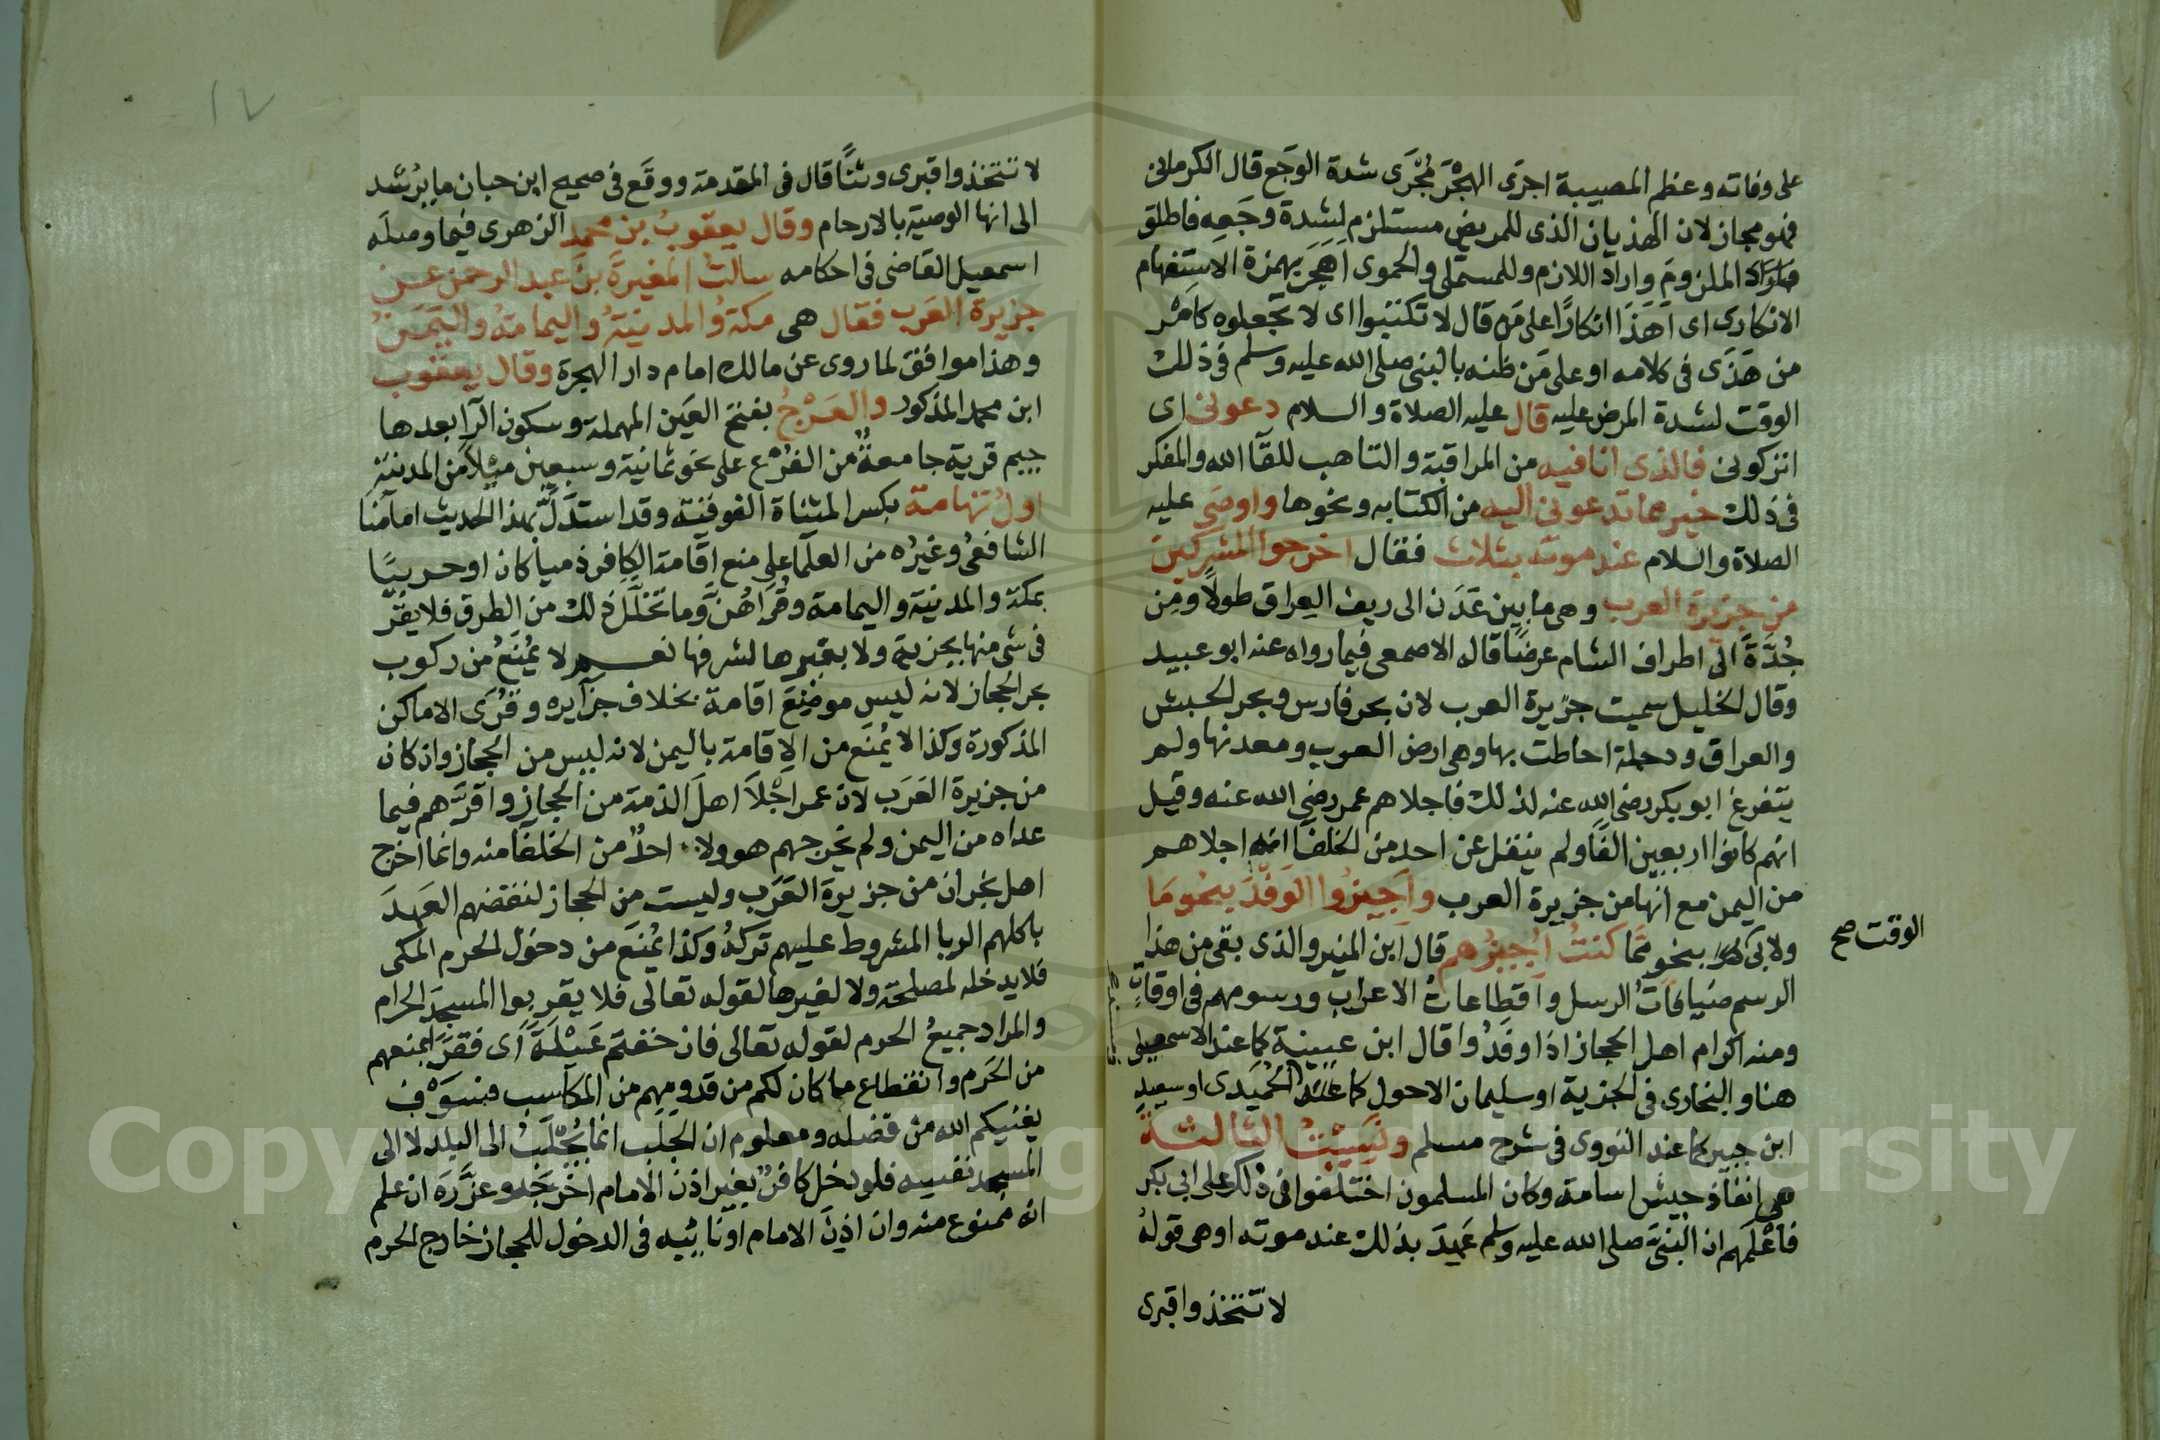 على وفاته وعظم المصيبة اجرَى الهجْرَ مُجْرَى شدة الوَجَع قال الكرمانى
فهو مجاز لان الهذيان الذى للمريض مستلزم لشدة وجَعِه فاطلق
الملزومَ واراد اللازم وللمستملى والحموى اَهَجَرَ بهمزة الاستفهام
الانكارى اى اَهَذَا انكارًا على مَن قال لا تكتبوا اى لا تجعلوه كاَمْر
من هَذَى فى كلامه او على مَن ظنه بالنبى صلى الله عليه وسلم فى ذلك
الوقت لشدة المرض عليه قال عليه الصلاة والسلام دعونى اى
اتركونى فالذى انا فيه من المراقبة والتاهب للقآ الله والفكر
فى ذلك خير مما تدعونى اليه من الكتابه ونحوها واوصَى عليه
الصلاة والسلام عند موته بثلاث فقال اخرجوا المشركين
من جزيرة العرب وهى ما بين عَدَن الى ريف العِراق طولًا ومِن
جُدَّةَ الى اطراف الشام عرضًا قاله الاصمعى فيما رواه عنه ابو عبيد
وقال الخليل سميت جزيرة العرب لان بحر فارس وبحر الحبش
والعراق ودجلة احاطت بها وهى ارض العرب ومعدنها ولم
يتفرغ ابو بكر رضى الله عنه لذلك فاجلاهم عمر رضى الله عنه وقيل
انهم كانوا اربعين الفًا ولم ينقل عن احد من الخلفا انه اجلاهم
من اليمن مع انها من جزيرة العرب واَجيزُوا الوَفْدَ بنحو مَا
ولابى بنحو مِمَّا كنتُ اُجيزُهم قال ابن المنير والذى بقى من هذا
الوقت صح
الرسم ضيافاتُ الرسل واقطاعاتُ الاعراب ورسومهم فى اوقاتٍ
ومنه اكرام اهل الحجاز اذا وفَدُوا قال ابن عيينة كما عند الاسمعيلى
هنا والبخارى فى الجزية او سليمان الاحول كما عند الحُمَيدى او سعيد
ابن جبير كما عند النووى فى شرح مسلم ونَسِيْتُ الثالثة
هى انفاذ جيش اسامة وكان المسلمون اختلفوا فى ذلك على ابى بكر
فاَعْلَمَهم ان النبىَّ صلى الله عليه وسلم عَهِدَ بذلك عند موته او هى قولهُ
لا تتخذوا قبرى
١٧
لا تتخذوا قبرى وثنًا قال فى المقدمة ووقَع فى صحيح ابن حبان ما يرُشد
الى انها الوصية بالارحام وقال يعقوبُ بن محمد الزهرى فيما وصلَه
اسمعيل القاضى فى احكامه سالتُ المغيرةَ بنَ عبد الرحمن عن
جزيرة العَرب فقال هى مكةُ والمدينةُ واليمامةُ واليَمَنُ
وهذا موافق لما روى عن مالك امام دار الهجرة وقال يعقوب
ابن محمد المذكور والعَرْجُ بفتح العَين المهملة وسكون الرآ بعدها
جيم قرية جامعةٌ من الفُرْع على نحو ثمانية وسبعين ميلًا من المدينة
اولُ تهامة بكسر المثناة الفوقية وقد استدَلَّ بهذا الحديث امامُنا
الشافعىُ وغيرُه من العلما على منع اقامة الكافر ذميا كان او حربيًا
بمكة والمدينة واليمامة وقُرَاهُنَّ وما تخَلَّل ذلك من الطرق فلا يقَرُّ
فى شى منها بجزية ولا بغيرها لشرفها نعم لا يُمْنَعُ من ركوب
بحر الحجاز لانه ليس موضِعَ اقامة بخلاف جزآيره وقُرَى الاماكن
المذكورة وكذا لا يُمنَع من الاقامة باليمن لانه ليس من الحجاز وان كان
من جزيرة العَرَب لان عمر اَجْلَا اهلَ الذمة من الحجاز واقرَّهم فيما
عداه من اليمن ولم يخرجهم هو ولا احدٌ من الخلفآ منه وانما اخرج
اهل نجران من جزيرة العَرَب وليست من الحجاز لنقضهم العَهدَ
باكلهم الربا المشروط عليهم تركهُ وكذا يُمنَع من دخول الحرم المكى
فلا يدخله لمصلحة ولا لغيرها لقوله تعالى فلا يقربوا المسجدَ الحرام
والمراد جميعُ الحرم لقوله تعالى فان خفتم عَيْلَةً اَى فقرًا بمنعهم
من الحَرم وانقطاع ما كان لكم من قدومِهم من المكآسب فسَوْف
يغنيكم الله من فضله ومعلوم ان الجلَب انما يُجْلَبُ الى البلد لا الى
المسجد نفسِه فلو دخل كافرٌ بغير اذن الامام اخرَجَه وعزَّرَه ان علم
انه ممنوع منه وان اذِنَ الامام او نائبه فى الدخول للحجاز خارج الحرم
Copyright © King Saud University